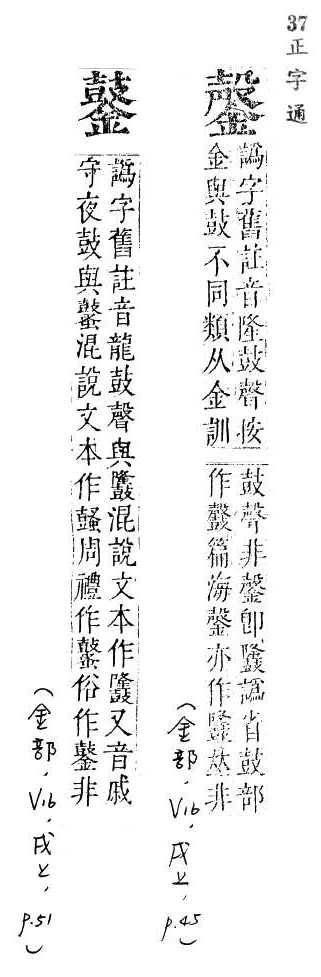 37 正字通
鏧
譌字舊註音隆鼓聲按
金與鼓不同類从金訓
鼓聲非鏧卽譌省鼓部
作篇海鏧亦作𠀤非
(金部, V16, 戌上, p.45)
譌字舊註音龍鼓聲與混說文本作又音戚
守夜鼓與鼜混說文本作周禮作鼜俗作非
(金部, V16, 戌上, p.51)